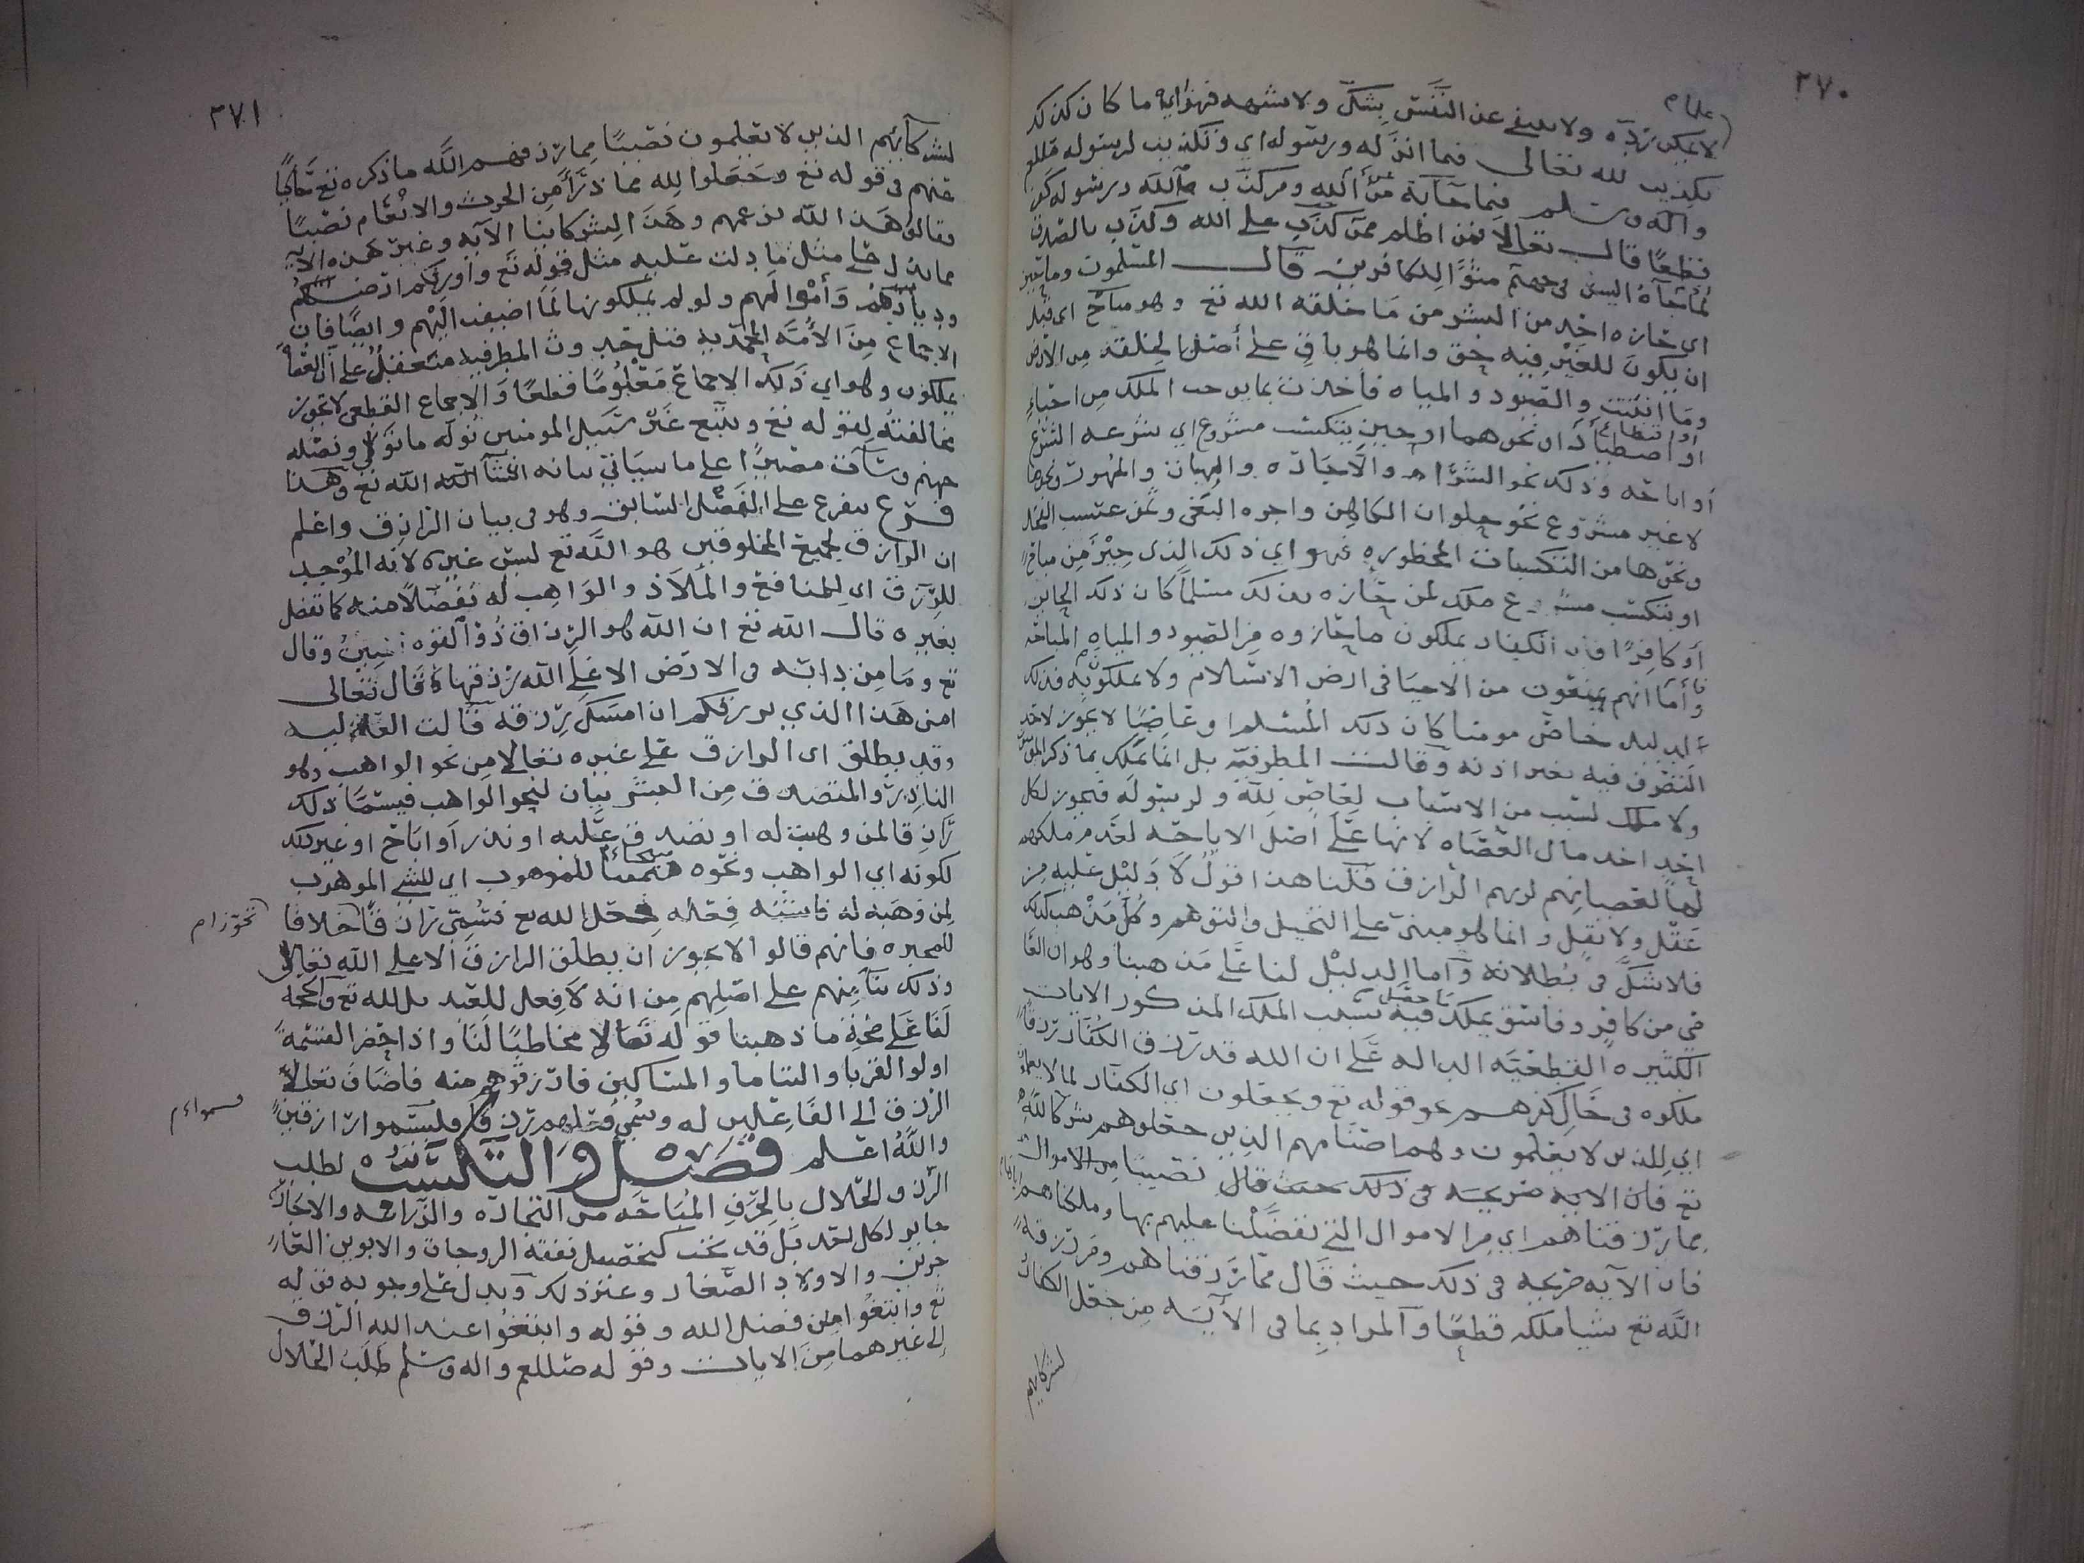 ٢٧٠
لا يمكن رده ولا ينتفي عن النفس بشك ولا شبهه فهو اي ما كان كذلك
تكذيب لله تعالى فيما انزله ورسوله اي وتكذيب لرسوله صللم
واله وسلم فيما جآء به عن الله ومن كذب الله ورسوله كفر
قطعًا قال تعالى فمن اظلم ممن كذب على الله وكذب بالصدق
اذ جآءه اليس في جهنم مثوًا للكافرين قال المسلمون وما
اي حازه احد من البشر من ما خلقه الله تع وهو مباح اي قبل
ان يكون للغير فيه حق وانما هو باق على أصل الخلقه من الارض
وما انبتت والصيود والمياه فأخذت بما يوجب الملك من احياءٍ
او اصطيادٍ او نحوهما او حيز بتكسب مشروع اي شرعه الشرع
أو اباحه وذلك نحو الشراء والاجاره والهبات والمهور ونحوها
لا غير مشروع نحو حلوان الكاهن واجره البغي وثمن عسب الفحل
ونحوها من التكسبات المحظوره فهو اي ذلك الذي حيز من مباح
او بتكسب مشروع ملك لمن حازه بذلك مسلمًا كان ذلك الحايز
أو كافرًا فان الكفار يملكون ما حازوه من الصيود والمياه المباحه
وأما انهم يمنعون من الاحيا في ارض الاسلام ولا يملكون به فذلك
لدليل خاص مومنا كان ذلك المسلم او عاصيًا لا يجوز لاحد
التصرف فيه بغير اذنه وقالت المطرفيه بل انما يملك بما ذكر المؤمن
ولا ملك لسبب من الاسباب لعاصٍ لله ولرسوله فيجوز لكل
احد اخذ مال العصاه لانها على أصل الاباحه لعدم ملكهم
لها لعصيانهم لربهم الرازق قلنا هذا اقولٌ لا دليل عليه من
عقل ولا نقل وانما هو مبني على التخيل والتوهم وكل مذهب كذلك
فلا شك في بطلانه وأما الدليل لنا على مذهبنا وهو ان العا
صي من كافر وفاسق يملك ما حصل فيه سبب الملك المذكور الايات
الكثيره القطعيه الداله على ان الله قد رزق الكفار رزقًا
ملكوه في حال كفرهم نحو قوله تع ويجعلون اي الكفار لما لا يعلمون
اي للذين لا يعلمون وهم اصنامهم الذين جعلوهم شركا لله
تع فان الايه صريحه في ذلك حيث قال نصيبا من الاموال
مما رزقناهم اي من الاموال التي تفضلنا عليهم بها وملكناهم
فان الآيه صريحه في ذلك حيث قال مما رزقناهم ومن رزقه
الله تع شيا ملكه قطعًا والمراد بما في الآيه من جعل الكفار
لشركايهم
٢٧١
لشركآئهم الذين لا يعلمون نصيبًا مما رزقهم الله ما ذكره تع حاكيًا
عنهم في قوله تع وجعلوا لله مما ذرأ من الحرث والانعام نصيبًا
فقالوا هذا الله بزعمهم وهذا لشركائنا الآيه وغير هذه الآيه
مما يدل على مثل ما دلت عليه مثل قوله تع واورثكم ارضهم
وديارهم وأموالهم ولو لم يملكونها لما اضيفت اليهم وايضًا فان
الاجماع من الأمه المحمديه قبل حدوث المطرفيه منعقد على أن العصاة
يملكون وهو اي ذلك الاجماع معلومًا قطعًا والاجماع القطعي لا تجوز
مخالفته لقوله تع ويتبع غير سبيل المومنين نوله ما تولى ونصله
جهنم وسآءت مصيرًا على ما سياتي بيانه انشآ الله تع وهذا
فرع يتفرع على الفصل السابق وهو في بيان الرازق واعلم
ان الرازق لجميع المخلوقين هو الله تع ليس غيره لانه الموجد
للرزق اي للمنافع والملاذ والواهب له تفضلًا منه كما تفضل
بغيره قال الله تع ان الله هو الرزاق ذو القوه المتين وقال
تع وما من دابه في الارض الا على الله رزقها وقال تعالى
امن هذا الذي يرزقكم ان امسك رزقه قالت العدليه
وقد يطلق اي الرازق على غيره تعالى من نحو الواهب وهو
الناذر والمتصدق من البشر بيان لنحو الواهب فيسمى ذلك
رازقا لمن وهب له او تصدق عليه او نذر أو اباح او غير ذلك
لكونه اي الواهب ونحوه للموهوب اي للشي الموهوب
لمن وهبه له فاشبه فعله فعل الله تع فسمي رازقًا خلافا
للمجبره فانهم قالوا لا يجوز ان يطلق الرازق الا على الله تعالى
وذلك بنآ منهم على اصلهم من انه لا فعل للعبد بل لله تع والحجه
لنا على صحة ما ذهبنا قوله تعالى مخاطبًا لنا واذا حضر القسمة
اولو القربا واليتاما والمساكين فارزقوهم منه فاضاف تعالى
الرزق الى الفاعلين له وسمي فعلهم رزقًا فليسموا رازقين
والله اعلم فصل والتكسب لطلب
الرزق الحلال بالحرف المباحه من التجاره والزراعه والاجاره
جايز لكل احد بل قد يجب كتحصيل نفقة الزوجات والابوين العا
جزين والاولاد الصغار وغير ذلك ويدل على وجوبه قوله
تع وابتغوا من فضل الله وقوله وابتغوا عند الله الرزق
إلى غيرهما من الايات وقوله صللعم واله وسلم طلب الحلال